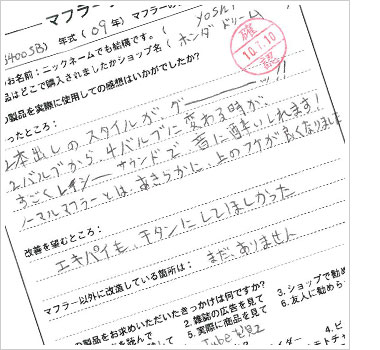 マフラー
400SB) 年式 ( 09年) マフラーの
お名前:ニックネームでも結構です。( YOSHI
品はどこで購入されましたかショップ名 ( ホンダドリーム
確 10.7.10 認
の製品を実際に使用しての感想はいかがでしたか?
ったところ:
2本出しのスタイルが、グーーッ!!
2バルブから、4バルブに変わる時が、
すごくレイシーサウンドで、音に酔いしれます!
ノーマルマフラーとは、あきらかに、上のフケが良くなりました
改善を望むところ:
エキパイも、チタンにしてほしかった
マフラー以外に改造している箇所は:
まだ、ありません
の製品をお求めいただいたきっかけは何ですか?
を読んで 2.雑誌の広告を見て 3.ショップで勧め
5.実際に商品を見て 6.友人に勧めら
Tube 見て
イダー 4.ビ